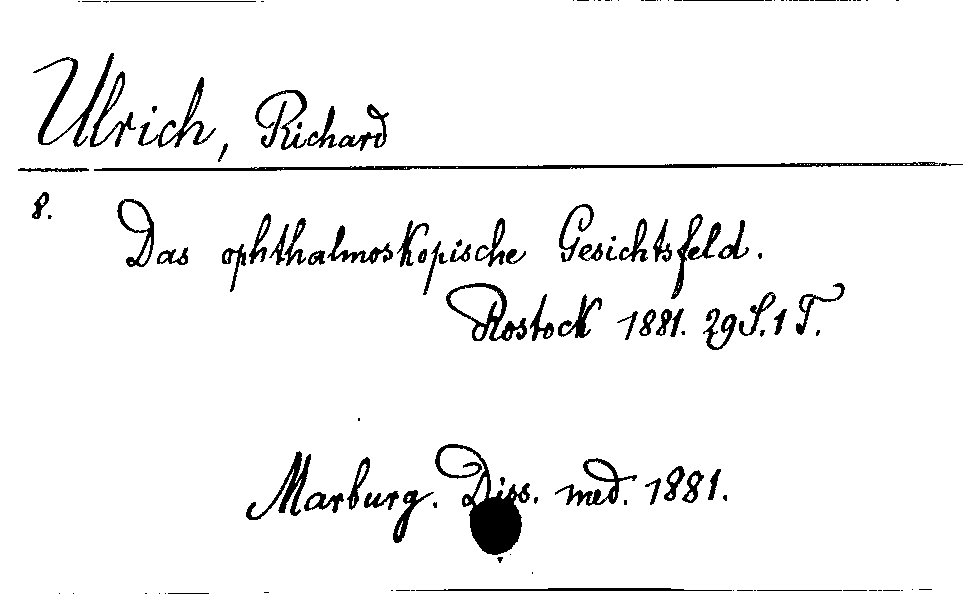 Ulrich, Richard
8. Das ophthalmoskopische Gesichtsfeld.
Rostock 1881. 29 S. 1 T.
Marburg. Diss. med. 1881.